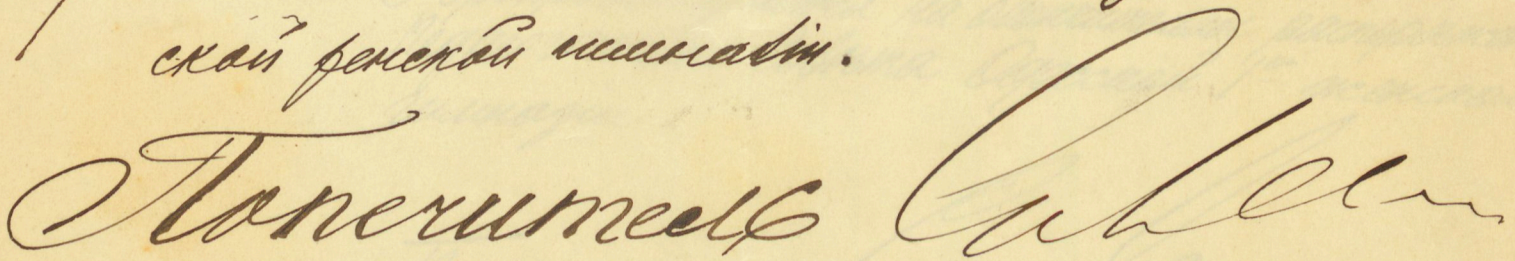 ской женской гимназіи.
Попечитель